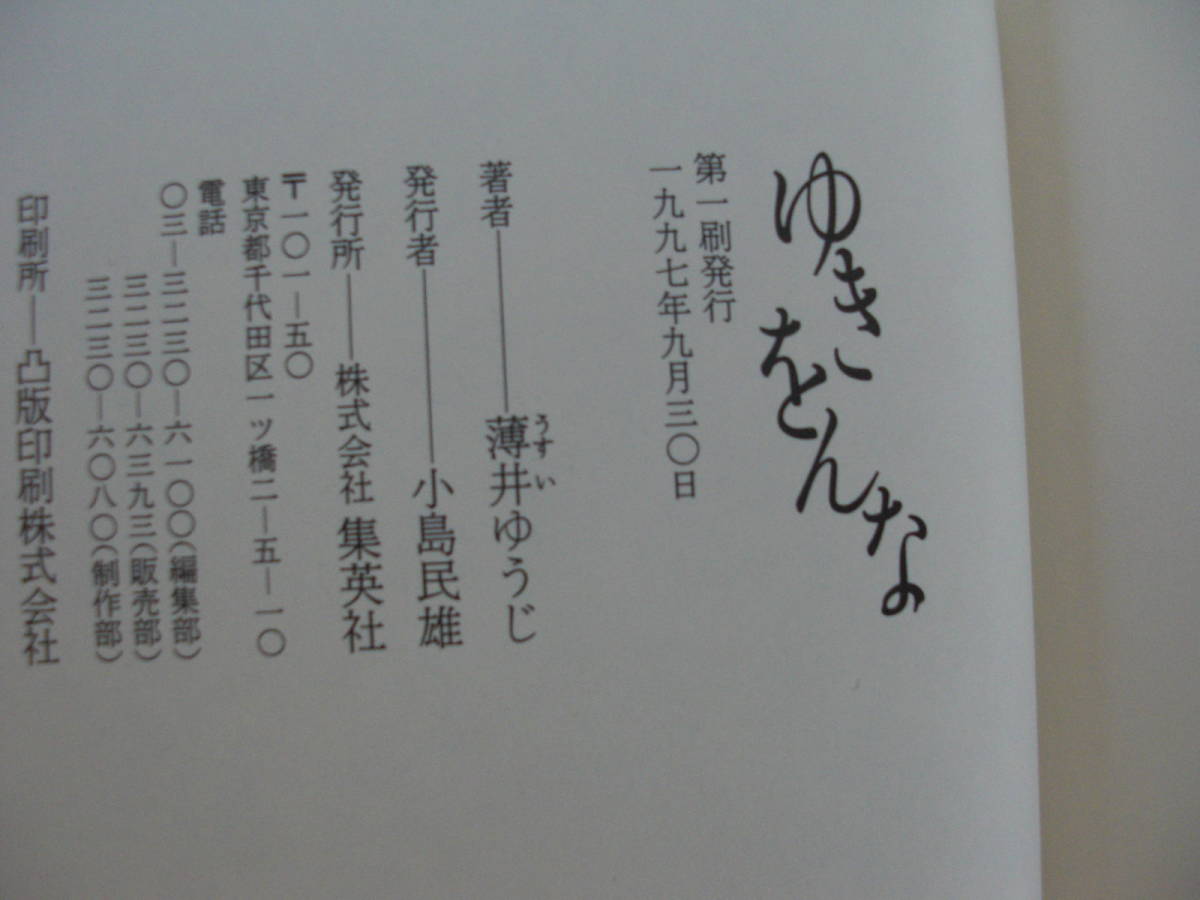 ゆきをんな
第一刷発行
一九九七年九月三〇日
著者――薄井ゆうじ
うすい
発行者――小島民雄
発行所――株式会社 集英社
〒一〇一―五〇
東京都千代田区一ツ橋二―五―一〇
電話
〇三―三二三〇―六一〇〇(編集部)
三二三〇―六三九三(販売部)
三二三〇―六〇八〇(制作部)
印刷所――凸版印刷株式会社